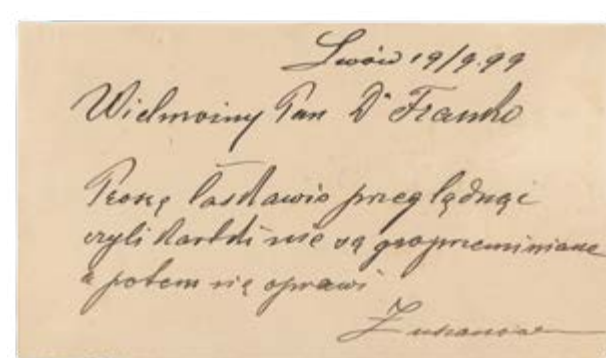 Lwów 19/9.99
Wielmożny Pan Dr Franko
Proszę łaskawie przeglądnąć
czyli kartki nie są poprzemieniane
a potem się oprawi